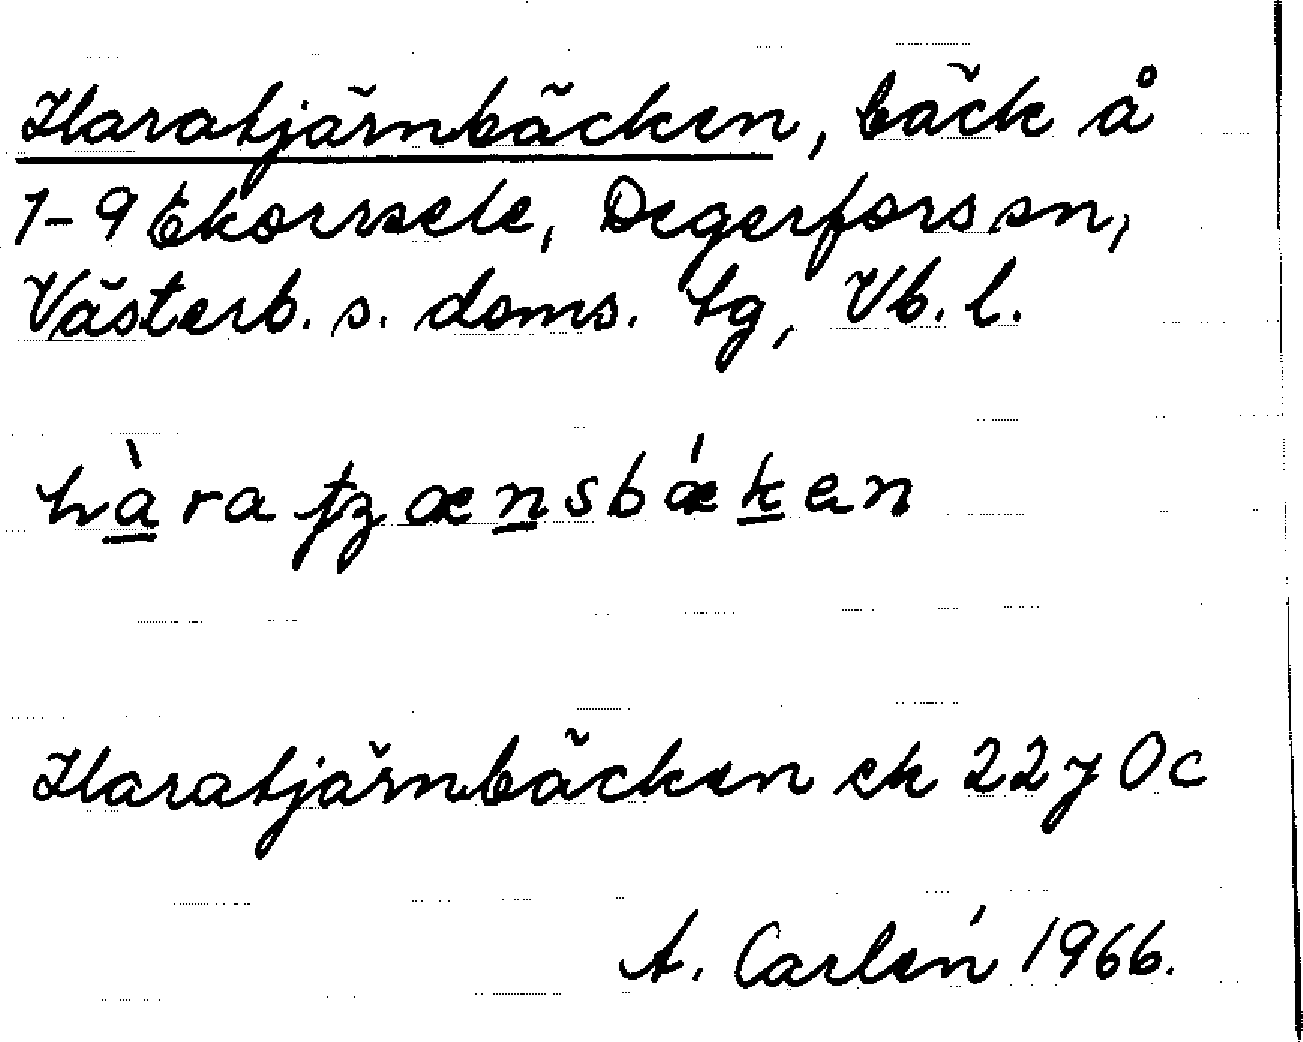 Haratjärnbäcken, bäck å
1-9 Ekorrsele, Degerfors sn,
Västerb. s. doms. tg, Vb. l.
hàrafʒænsbǽken
Haratjärnbäcken ek 22 y 0 c
A. Carlén 1966.